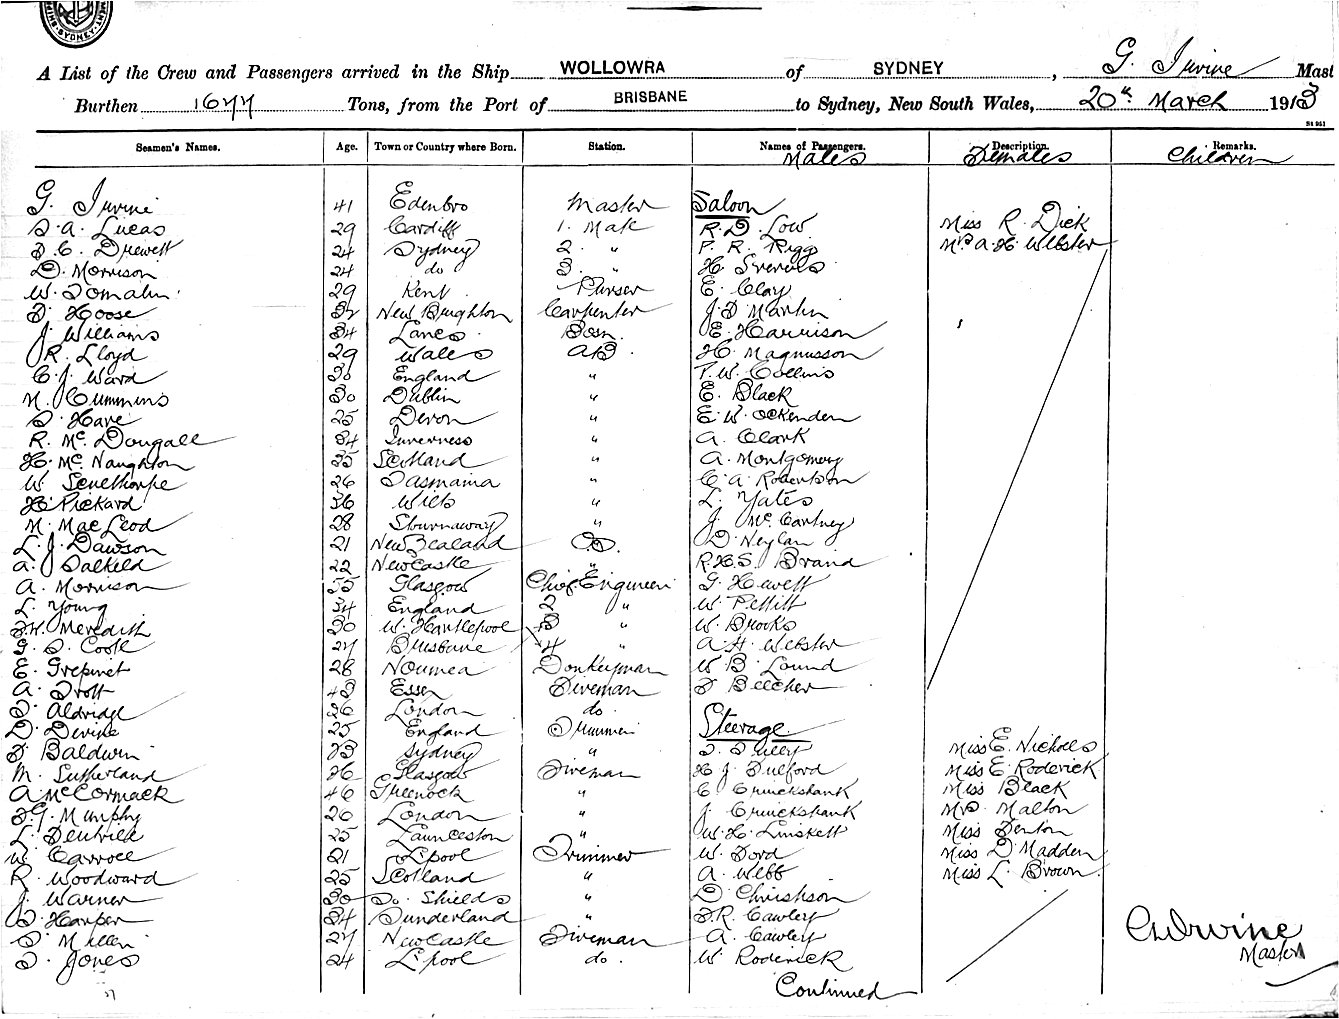 SYDNEY
A List of the Crew and Passengers arrived in the Ship WOLLOWRA of SYDNEY, G. Irvine Mast
Burthen 1677 Tons, from the Port of BRISBANE to Sydney, New South Wales, 20th March 1913
St 951
Seamen's Names. Age. Town or Country where Born. Station. Names of Passengers. Description. Remarks.
Males Females Children
G. Irvine 41 Edenbro Master Saloon
S. A. Lucas 29 Cardiff 1. Mate R. D. Low Miss R. Dick
D. C. Drewett 24 Sydney 2. " P. R. Rigg Mrs A. H. Webster
D. Morrison 24 do 3. " H.
W. Tomalin 29 Kent Purser E. Clay
D. Hoose 32 New Brighton Carpenter J. D. Martin
J. Williams 34 Lancs Bosn. E. Harrison
R. Lloyd 29 Wales AB. H. Magnusson
C. J. Ward 30 England " P. W. Collins
M. Cummins 30 Dublin " E. Black
S. Hare 25 Devon " E. W. Ockenden
R. Mc. Dougall 34 Inverness " A. Clark
H. Mc. Naughton 35 Scotland " A. Montgomery
W. 26 Tasmania " C. A. Robertson
H. Pickard 36 Wilts " L. Yates
M. MacLeod 28 Stornaway " J. McCartney
L. J. Dawson 21 New Zealand OS. D. Neylan
A. Salkeld 22 Newcastle " R. H. S. Brand
A. Morrison 55 Glasgow Chief Engineer G. Hewett
L. Young 34 England 2 " W. Pettitt
F. W. Meredith 30 W. Hartlepool 3 " W. Brooks
G. S. Coote 27 Brisbane 4 " A. H. Webster
E. Grepinet 28 Noumea Donkeyman W. B. Lound
A. Trott 43 Essex Fireman F Beecher
T. Aldridge 26 London do.
D. Devine 25 England Trimmer Steerage
F. Baldwin 23 Sydney " Miss E. Nicholls
M. Sutherland 26 Glasgow Fireman H J Fulford Miss E. Roderick
A McCormack 46 Greenock " C Cruickshank Miss Black
F. G. Murphy 26 London " J. Cruickshank Mrs. Malton
L. 25 Launceston " W. H. Linskett Miss Denton
W. Carroll 21 L'pool Trimmer W. Ford Miss D. Madden
R. Woodward 25 Scotland " A. Webb Miss L. Brown
J. Warner 30 So. Shields " D. Christison
T. Harper 34 Sunderland " F. R. Cawley
T. Millen 27 Newcastle Fireman A. Cawley
T. Jones 24 L'pool do. W. Roderick
G Irvine
Master
Continued